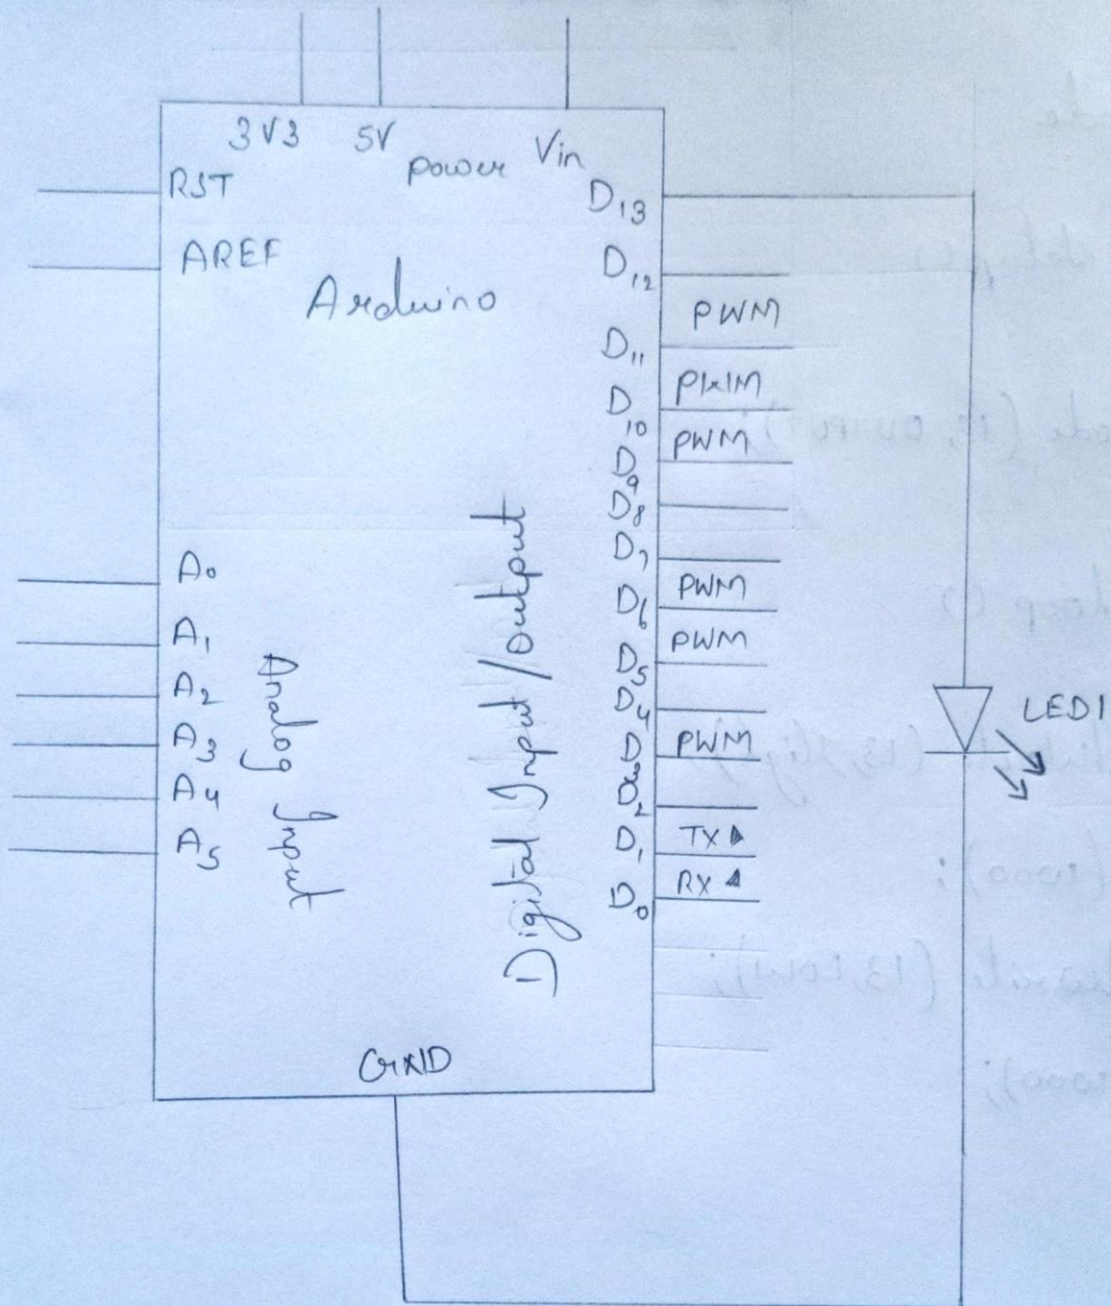 3V3 5V Power Vin
RST
AREF
Arduino
D13
D12
PWM
D11
PWM
D10
PWM
D9
D8
D7
PWM
D6
PWM
D5
D4
PWM
D3
D2
TX
D1
RX
D0
A0
A1
A2
A3
A4
A5
Analog Input
Digital Input/output
GND
LED1